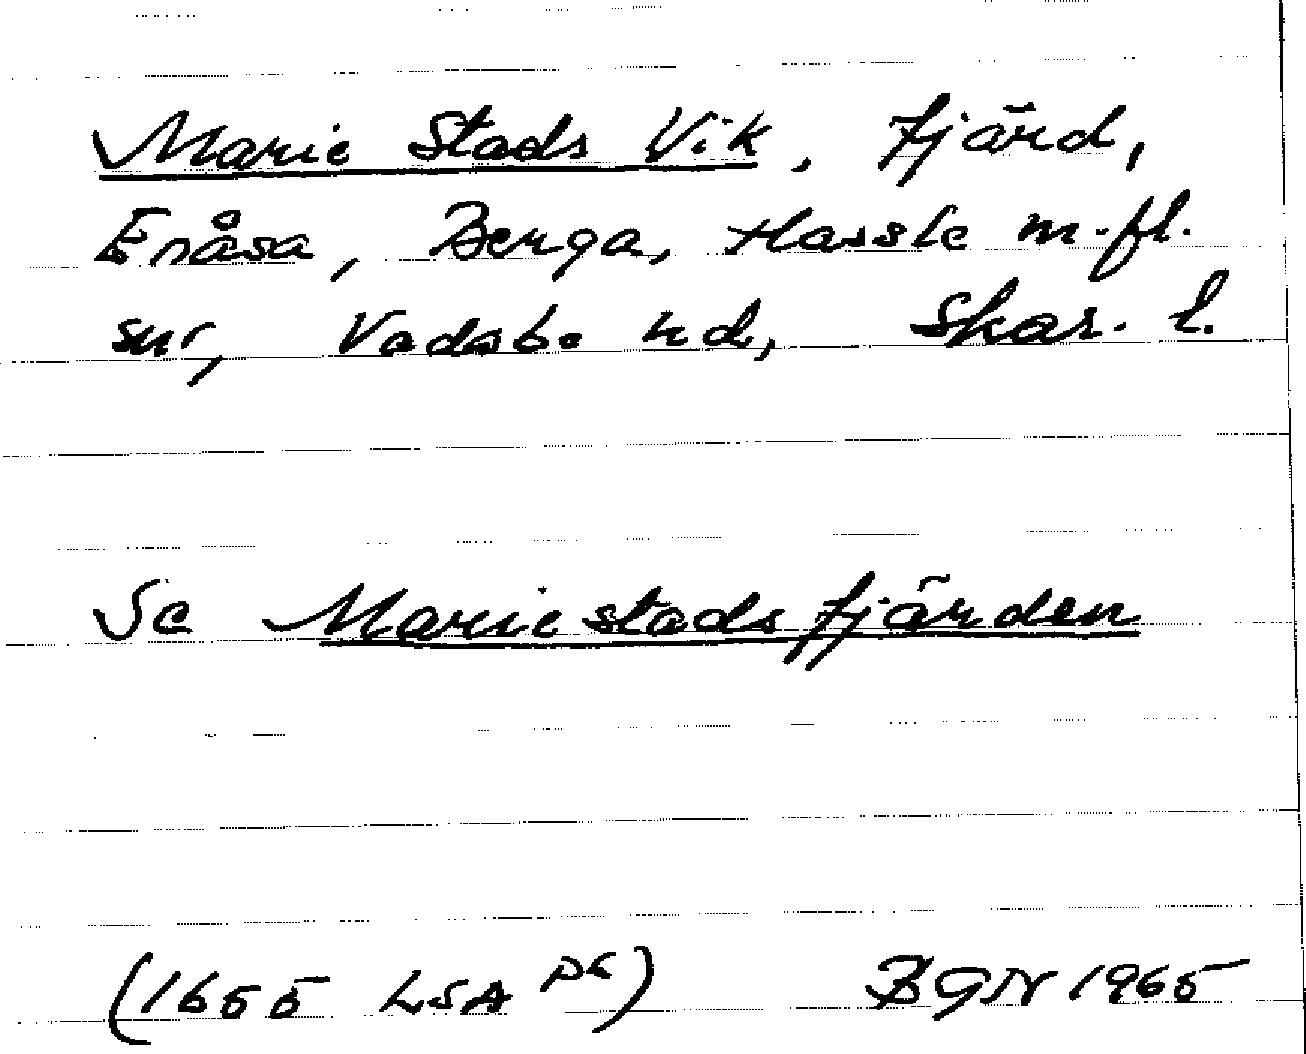 Marie Stads Vik, fjärd,
Enåsa, Berga, Hassle m.fl.
snr, Vadsbo hd, Skar. l.
Se Mariestadsfjärden
(1655 LSA P6) BGN 1965